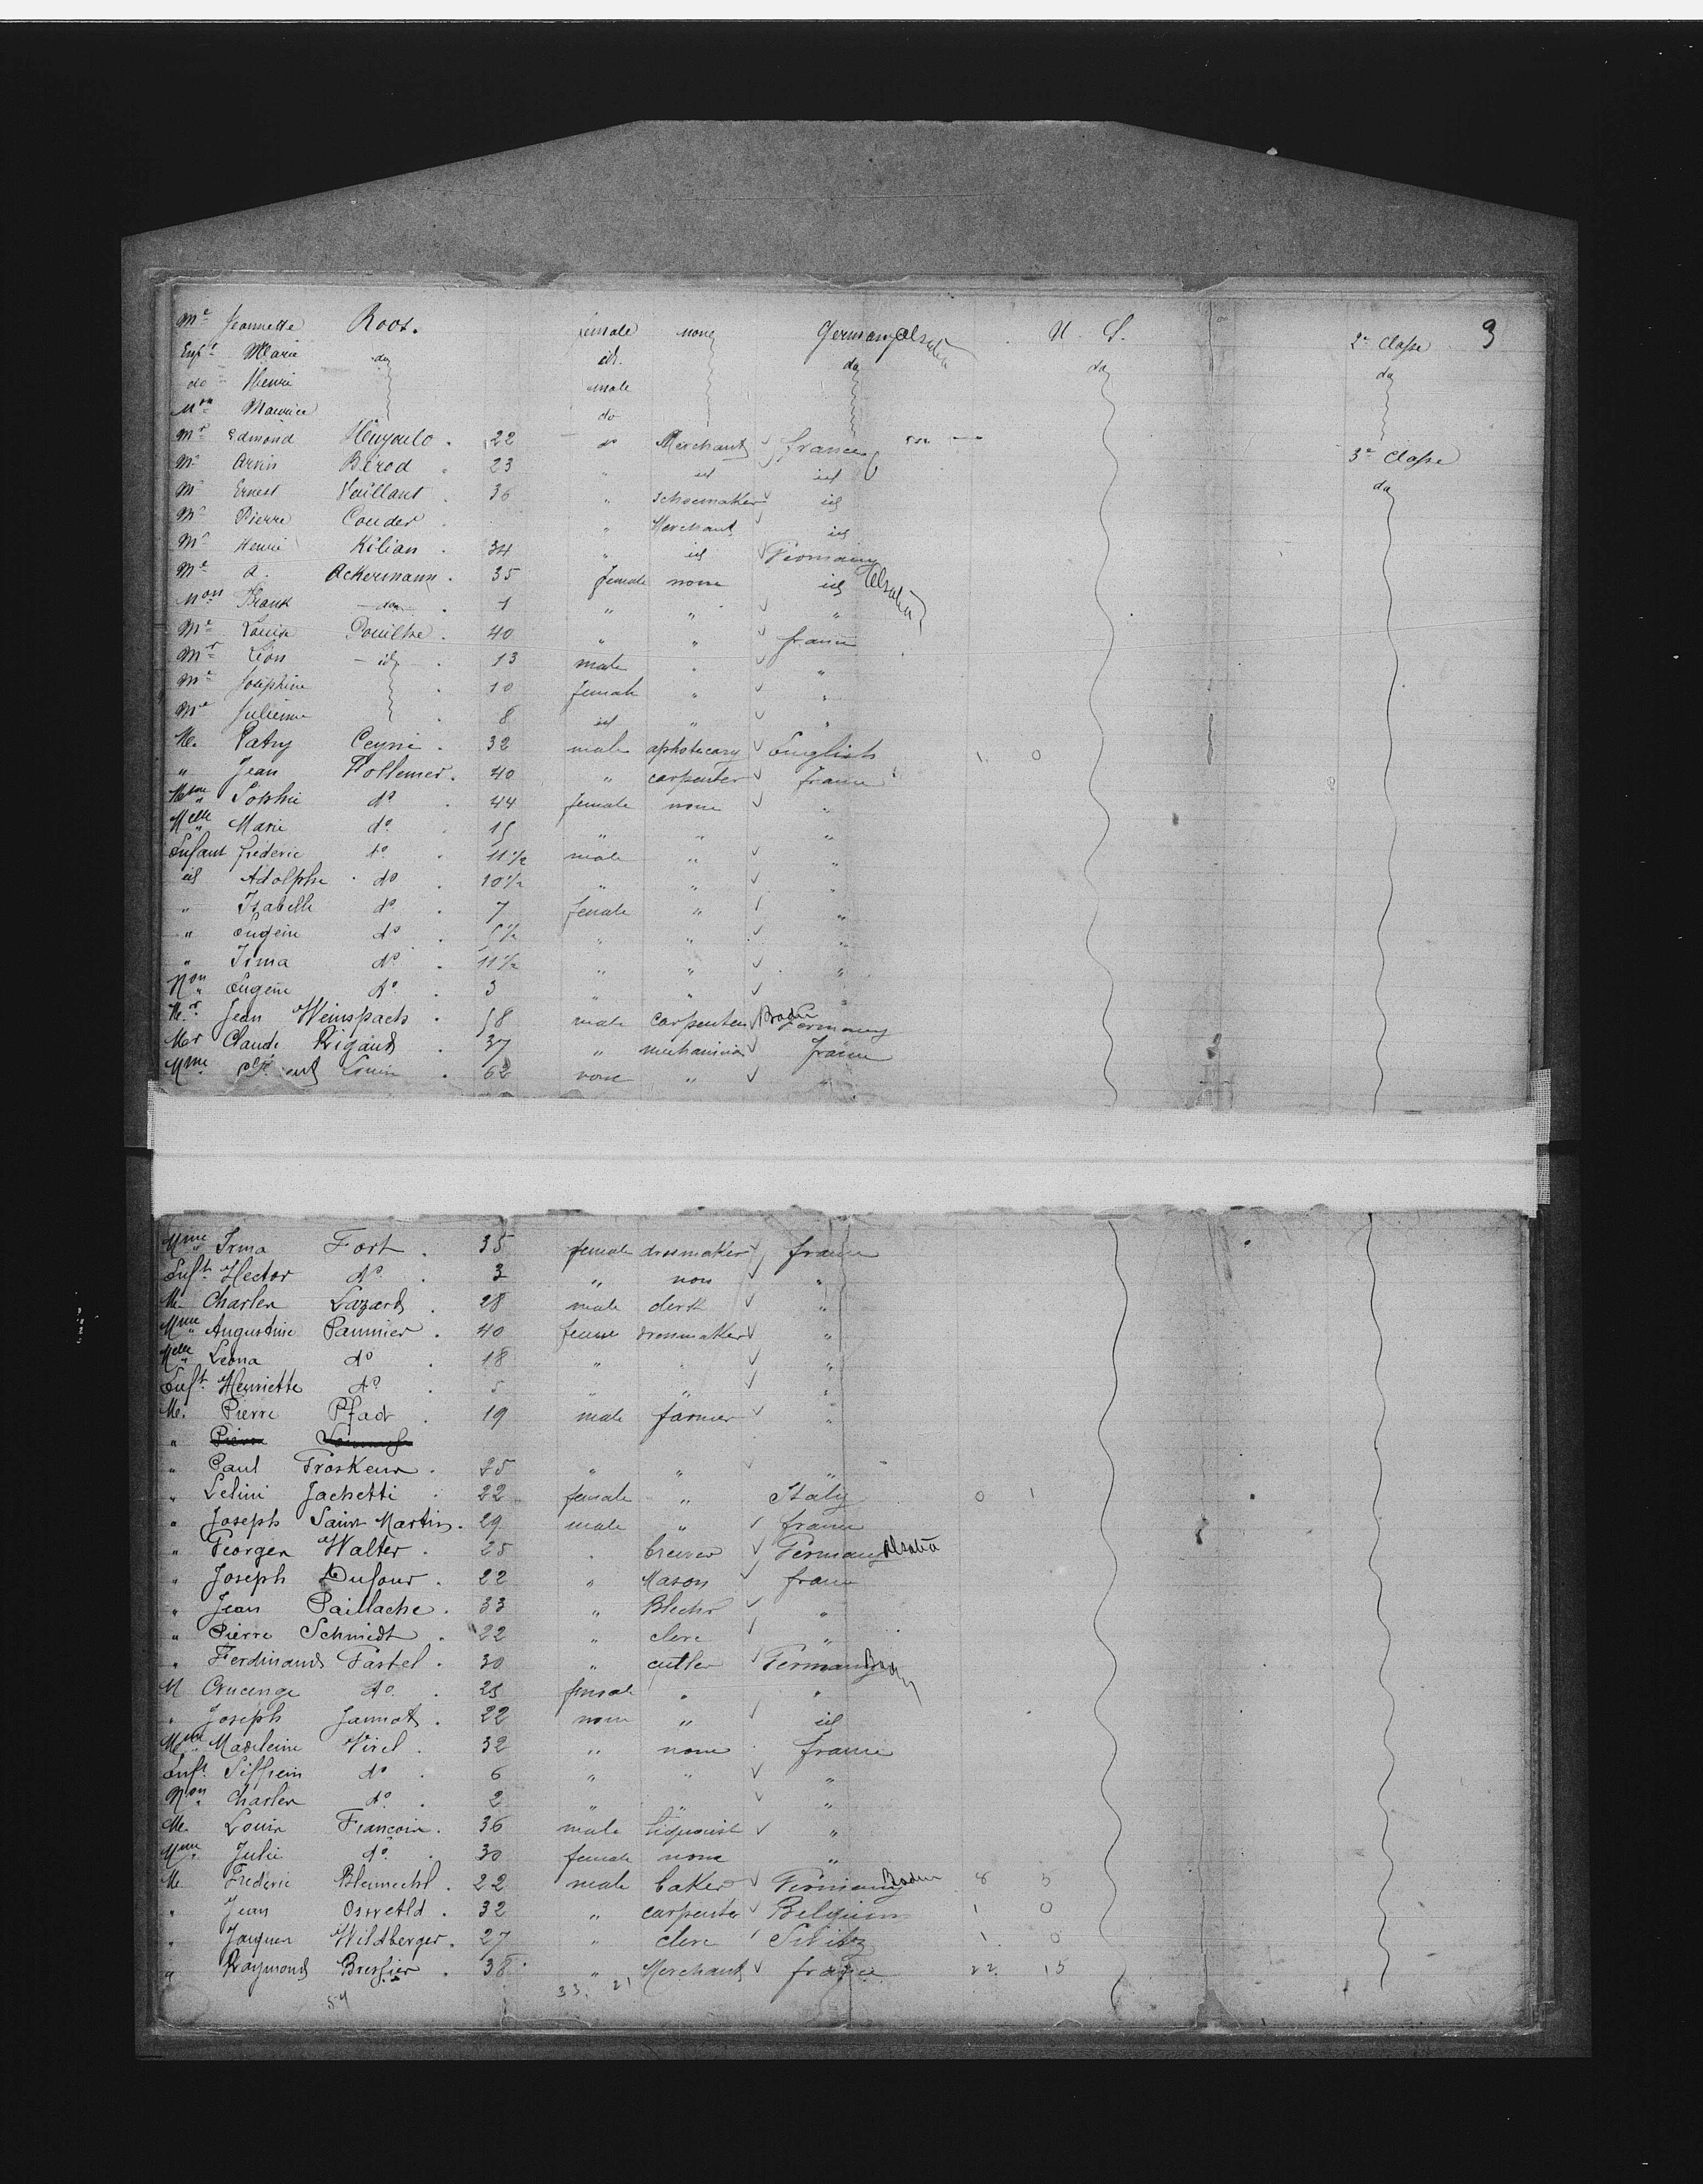 Me Jeannette Root. female none Germany Alsatia U. S. 2e Classe 3
Enft Marie do id. do do do
do Henri male
Mon Maurice do
Mr Edmond 22 do Merchant france 3e Classe
Mr Bérod 23 " id id do
Mr Ernest Vaillant. 36 " schoemaker id
Mr Pierre Couder " Merchant id
Mr Henri Kilian. 34 " id Germany
Me A. Ackermann. 35 female none id Alsatia
Mon Frank do 1 " " "
Me Louise 40 " " france
Mr Léon id 13 male " "
Me Joséphine 10 female " "
Me Julienne 8 id " "
Mr. Patry Ceyni. 32 male aphotecary English 1. 0
" Jean Follemer. 40 " carpenter france
Mme Sophie do 44 female none "
Melle Marie do 15 " " "
Enfant frederic do 11 1/2 male " "
id Adolphe do 10 1/2 " " "
" Isabelle do 7 female " "
" Eugein do 5 1/2 " " "
" Irma do 11 1/2 " " "
Non Eugene do 3 " " "
Mr. Jean Weinspach 58 male carpenter Baden Germany
Mr Claude Rigaud 37 " mechanician france
Mme Louis 62 none "
Mme Irma Fort. 35 female dressmaker france
Enft Hector do 3 " non "
Mr. Charles Lazard. 28 male clerk "
Mme Augustine Paumier. 40 femme dressmaker "
Melle Leona do 18 " " "
Enft Henriette do 5 " " "
Mr. Pierre Pfadt 19 male farmer "
" Pierre
" Paul Troskeur. 25 " " "
" Jachetti 22 female " Italy 0 1
" Joseph Saint Martin. 29 male " france
" Georges Walter. 25 " brewer Germany Alsatia
" Joseph Dufour. 22 " Mason france
" Jean Paillache. 33 " "
" Pierre Schmidt. 22 " clerc "
" Ferdinand Fastel. 30 " cutler Germany
M do. 25 female " "
" Joseph Jannot. 22 none " id
Mme Madeleine Virel. 32 " none france
Enft do 6 " " "
Non Charles do. 2 " " "
Mr. Louis Francois. 36 male liquorist "
Mme Julie do. 30 female none "
Mr Frederic 22 male baker Germany Baden 8 5
" Jean Osswald. 32 " carpenter Belgium 1 0
" Jacques Wildberger. 27 " clerc Switz 1. 0
" Raymond Bressier. 38 " Merchant france 22. 15
54 33. 21